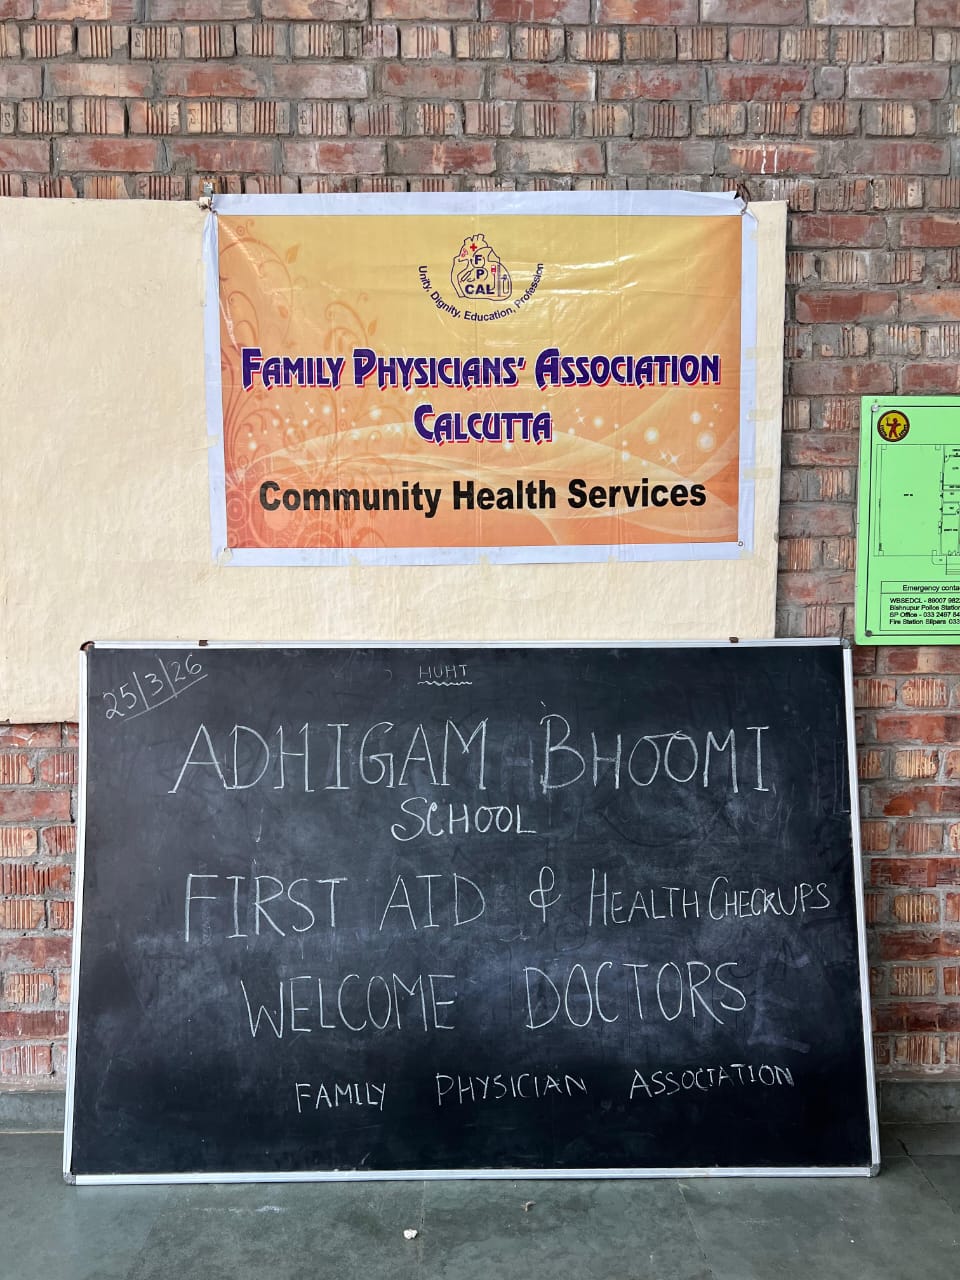 F
P
CAL
Unity, Dignity, Education, Profession
FAMILY PHYSICIANS' ASSOCIATION
CALCUTTA
Community Health Services
Emergency conta
WBSEDCL - 89007 982
Bishnupur Police Station
SP Office - 033 2497 84
Fire Station Silpara 033
25/3/26
HUHT
ADHIGAM BHOOMI
SCHOOL
FIRST AID & HEALTH CHECKUPS
WELCOME DOCTORS
FAMILY PHYSICIAN ASSOCIATION